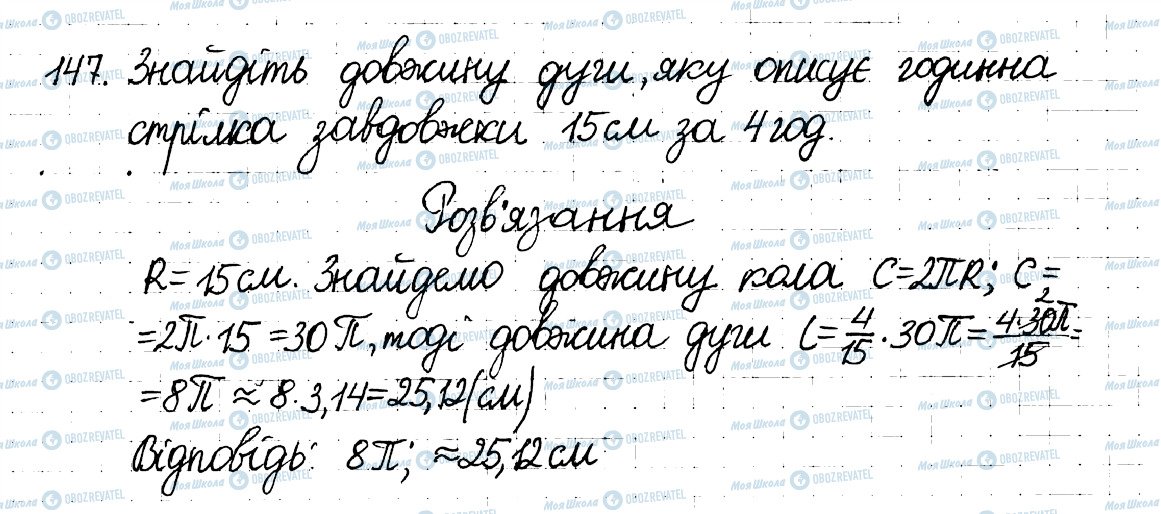 147. Знайдіть довжину дуги, яку описує годинна
стрілка завдовжки 15 см за 4 год.
Розв'язання
R = 15 см. Знайдемо довжину кола C = 2πR; C =
= 2π · 15 = 30π, тоді довжина дуги l = 4/15 · 30π = 4·30π/15 =
= 8π ≈ 8 · 3,14 = 25,12 (см)
Відповідь: 8π; ≈ 25,12 см